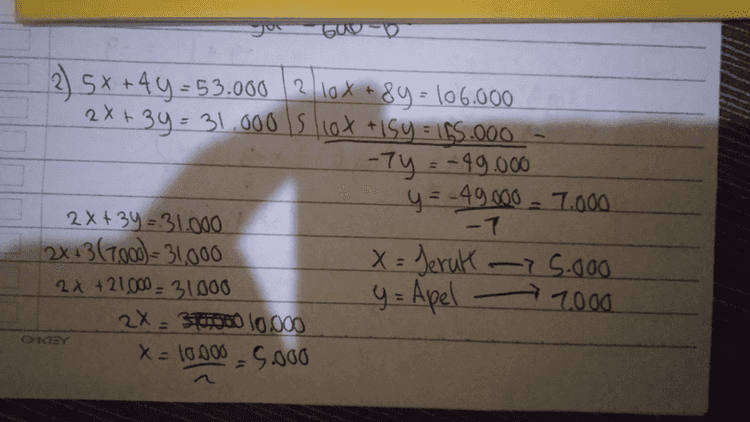 2) 5x + 4y = 53.000 | 2 | 10x + 8y = 106.000
2x + 3y = 31.000 | 5 | 10x + 15y = 155.000 -
-7y = -49.000
y = -49.000 / -7 = 7.000
2x + 3y = 31.000
2x + 3(7.000) = 31.000
2x + 21.000 = 31.000
2x = 10.000
x = 10.000 / 2 = 5.000
x = Jeruk → 5.000
y = Apel → 7.000